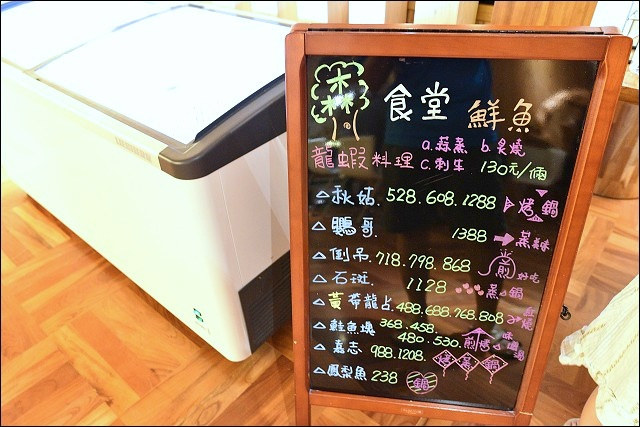 森 食堂 鮮魚
龍蝦料理 a.蒜蒸 b.炙燒
c.刺生 130元/兩
△秋姑. 528.608.1288 烤鍋
△鸚哥. 1388 → 蒸美味
△倒吊. 718.798.868 煎 好吃
△石斑. 1128 蒸鍋
△黃帝龍占 488.688.768.808
△鮭魚塊 368.458.
480.530. 煎烤
△嘉志. 988.1208. 烤蒸鍋
△鳳梨魚 238 鍋